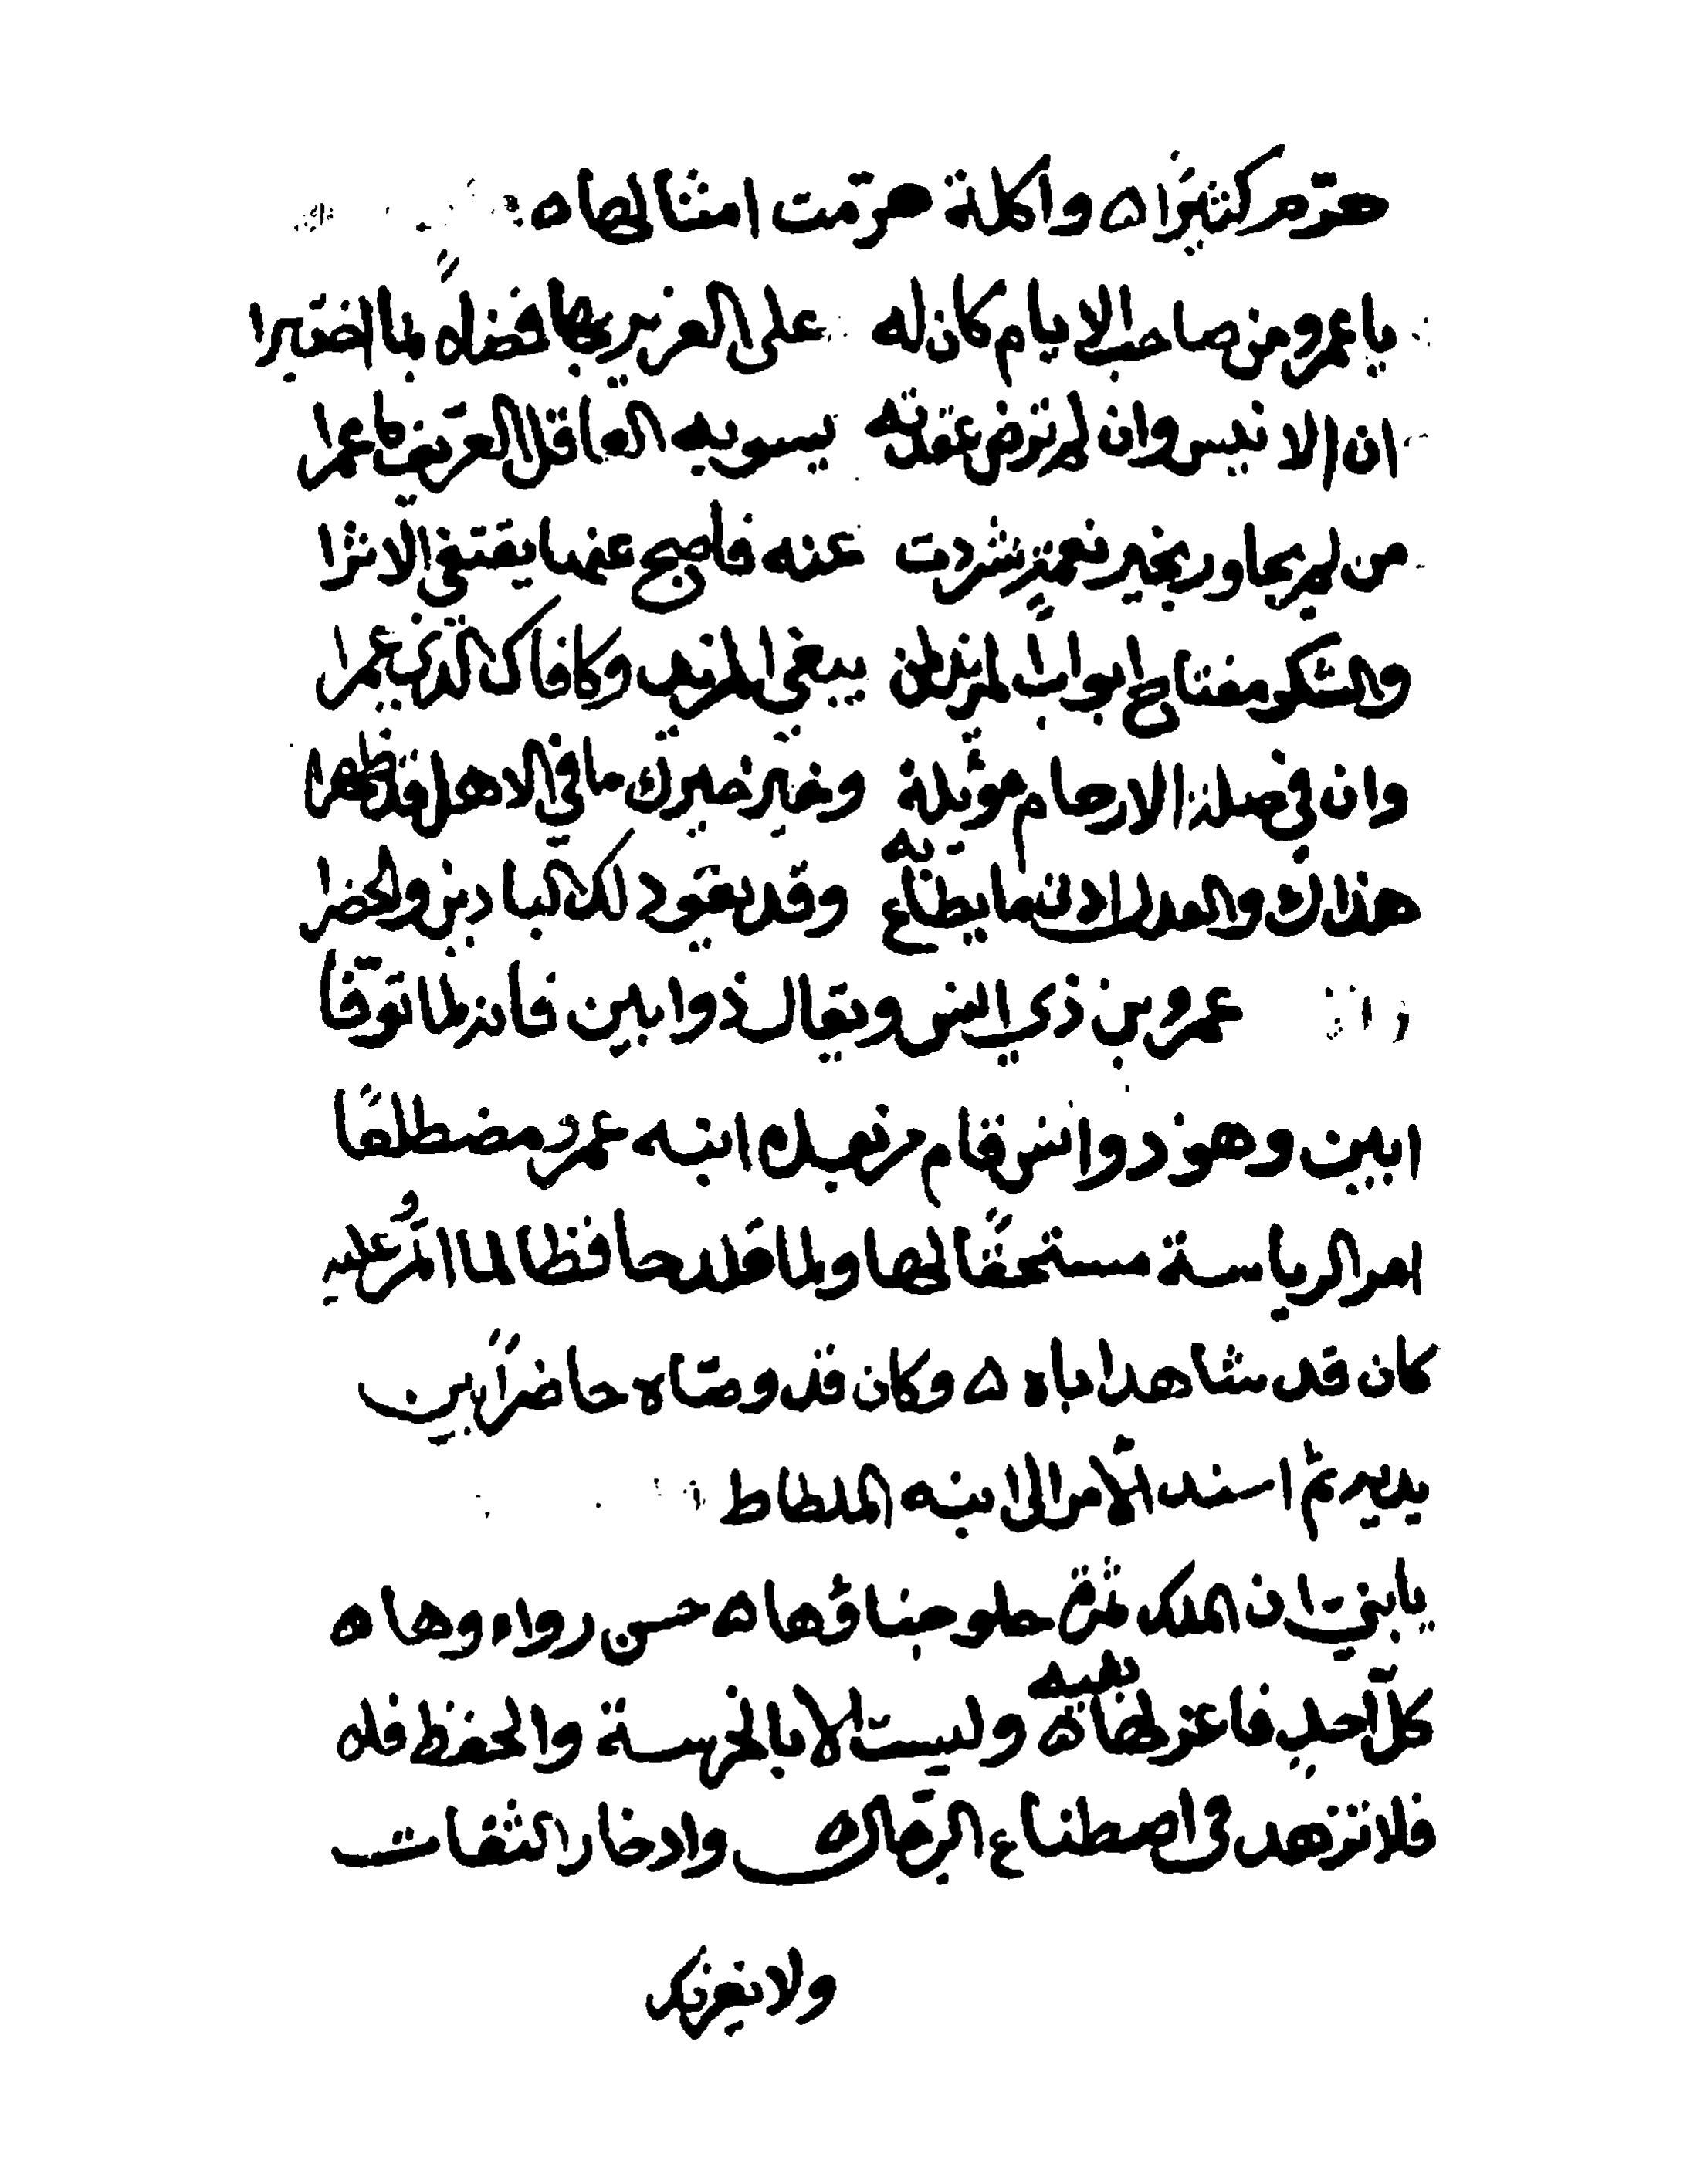 حرّم كثيرًا ه واكلة حرّمت امثالها ه
يا عمرو من صاحب الايام كان له على الغرير بها فضلًا لما اختبرا
ان الانيس وان لم ترض عقدته يسويه العاقل
من لم يجاور بخير نعمةٍ شردت عنه فاصبح عنها يقتفي الاثرا
والشكر مفتاح ابواب المزيد لمن يبغي المزيد وكافاك الذي عمرا
وان في صلة الارحام موئلة وخير خيرك ما في الاهل قد ظهرا
هذاك والعدل يه وقد يقود لك البادين والحضرا
عمرو بن ذي انس ويقال ذو ابين فانه لما توفا
ابين وهو ذو انس قام من بعده ابنه عمرو مضطلعًا
امر الرياسة مستحقًا لها ولما قلد حافظا لما امُر عليه
كان قد شاهد اباه ه وكان قد وصّاه حاضرًا بين
يديه ثم اسند الأمر الى ابنه الملطاط
يا بنيّ ان الملك ثمرة حلو جناؤها ه حسن رواه وها ه
نفسه
كلّ احدٍ وليست الا بالحرسة والحفظ فله
فلا تزهد في اصطناع الرجال وادخار الثقات
ولا يغرنك